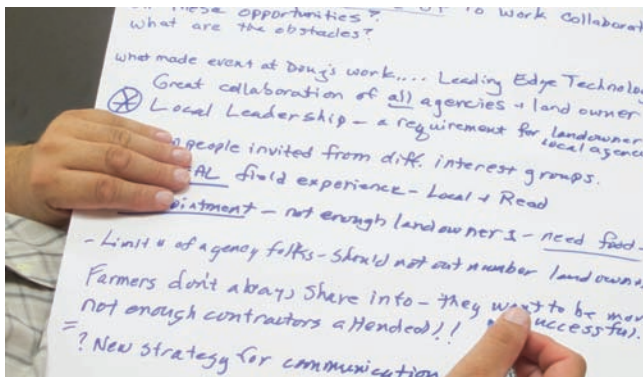 these opportunities? to work collaborat
what are the obstacles?
what made event at Doug's work.... Leading Edge Technolo
Great collaboration of all agencies + land owner
Local Leadership - a requirement for landowner
local agenc
people invited from diff. interest groups.
AL field experience - Local + Read
ointment - not enough landowners - need food
- Limit # of agency folks - should not out number landowne
Farmers don't always share info - they want to be mor
successful.
not enough contractors attended!!
=
? New strategy for communication